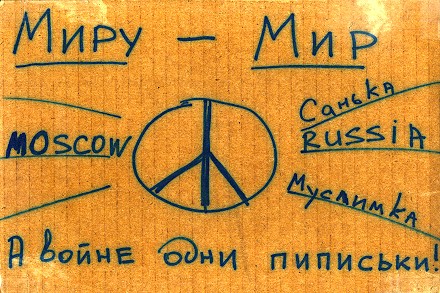 Миру – Мир
Санька
MOSCOW
RUSSIA
Муслимка
А войне одни пиписьки!